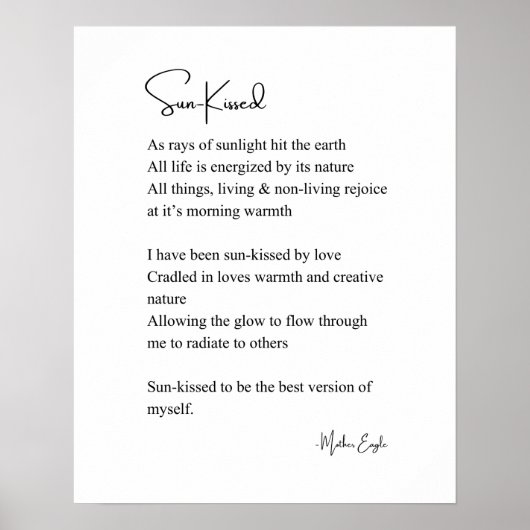 Sun-Kissed
As rays of sunlight hit the earth
All life is energized by its nature
All things, living & non-living rejoice
at it's morning warmth
I have been sun-kissed by love
Cradled in loves warmth and creative
nature
Allowing the glow to flow through
me to radiate to others
Sun-kissed to be the best version of
myself.
-Mother Eagle